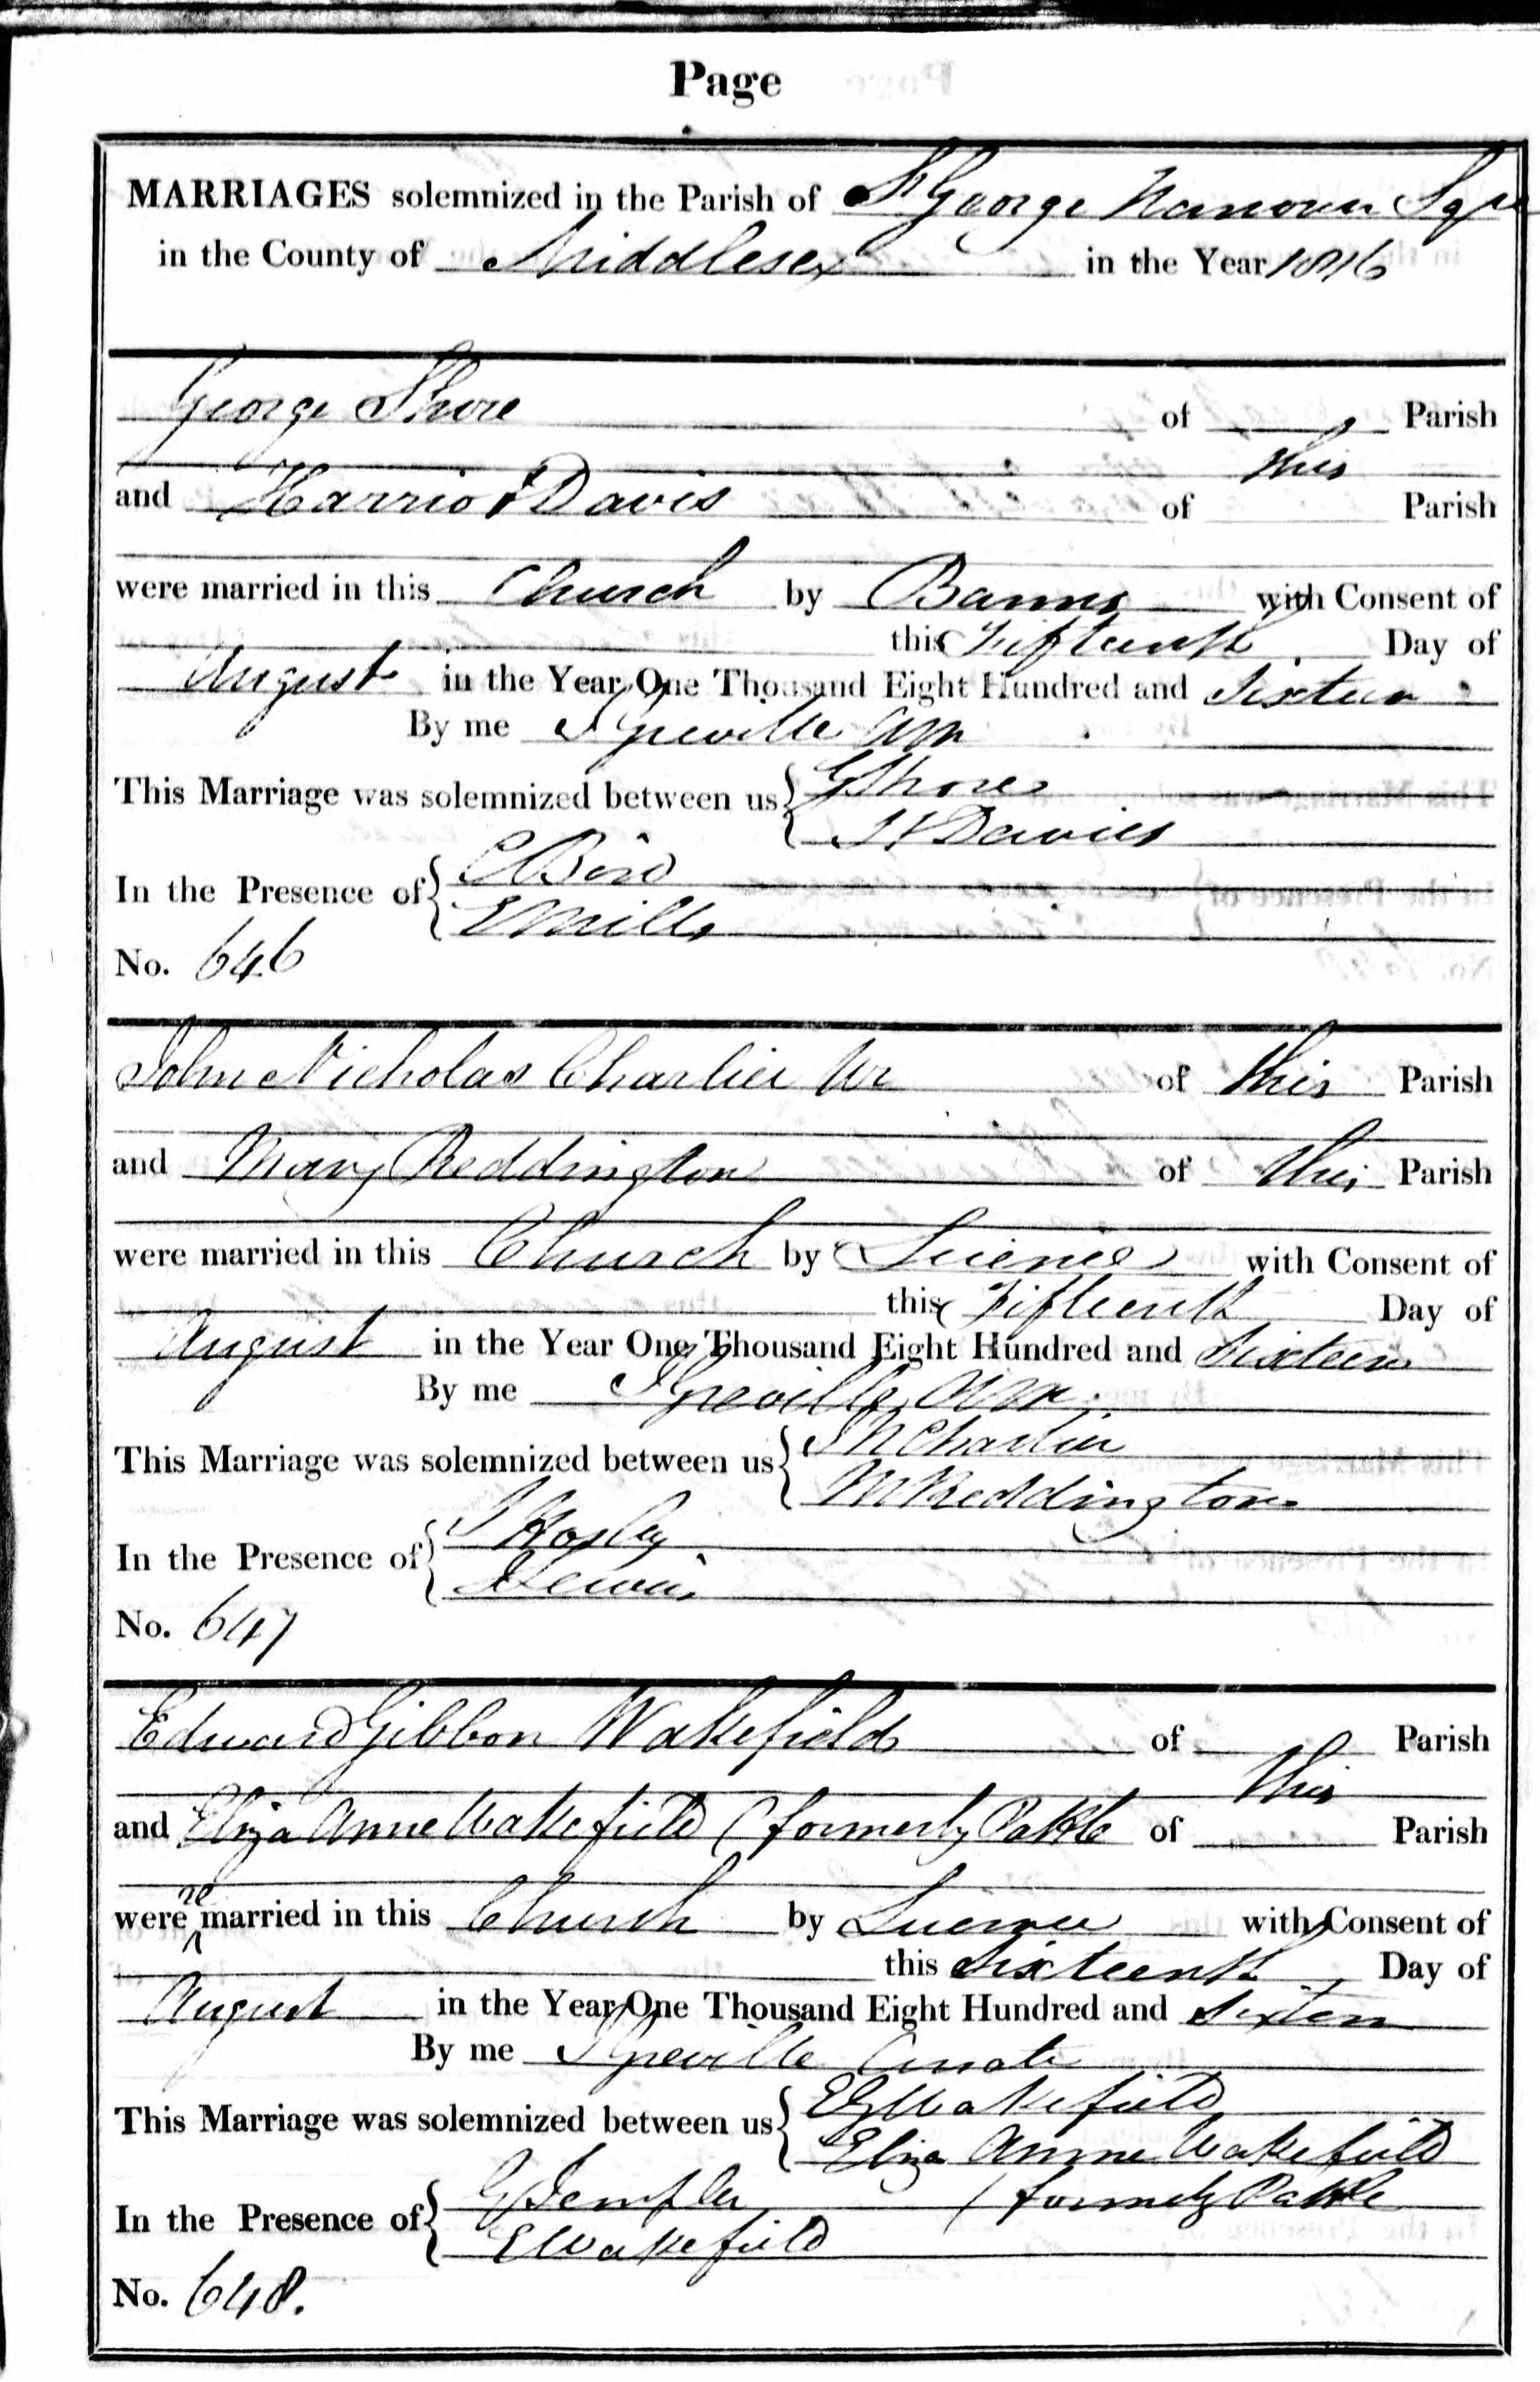 Page
MARRIAGES solemnized in the Parish of St George Hanover Sqre
in the County of Middlesex in the Year 1816
George Shore of Parish
this
and Harriot Davis of Parish
were married in this Church by Banns with Consent of
this Fifteenth Day of
August in the Year One Thousand Eight Hundred and Sixteen
By me J Greville
This Marriage was solemnized between us G Shore
H Davies
In the Presence of C Bird
E Mills
No. 646
John Nicholas Charlier Wr of this Parish
and Mary Reddington of this Parish
were married in this Church by Licence with Consent of
this Fifteenth Day of
August in the Year One Thousand Eight Hundred and Sixteen
By me J Greville
This Marriage was solemnized between us J N Charlier
M Reddington
In the Presence of
No. 647
Edward Gibbon Wakefield of Parish
this
and Eliza Anne Wakefield (formerly Pattle of Parish
re
were married in this Church by Licence with Consent of
this Sixteenth Day of
August in the Year One Thousand Eight Hundred and Sixteen
By me J Greville Curate
This Marriage was solemnized between us E G Wakefield
Eliza Anne Wakefield
(formerly Pattle
In the Presence of G Templer
E Wakefield
No. 648.